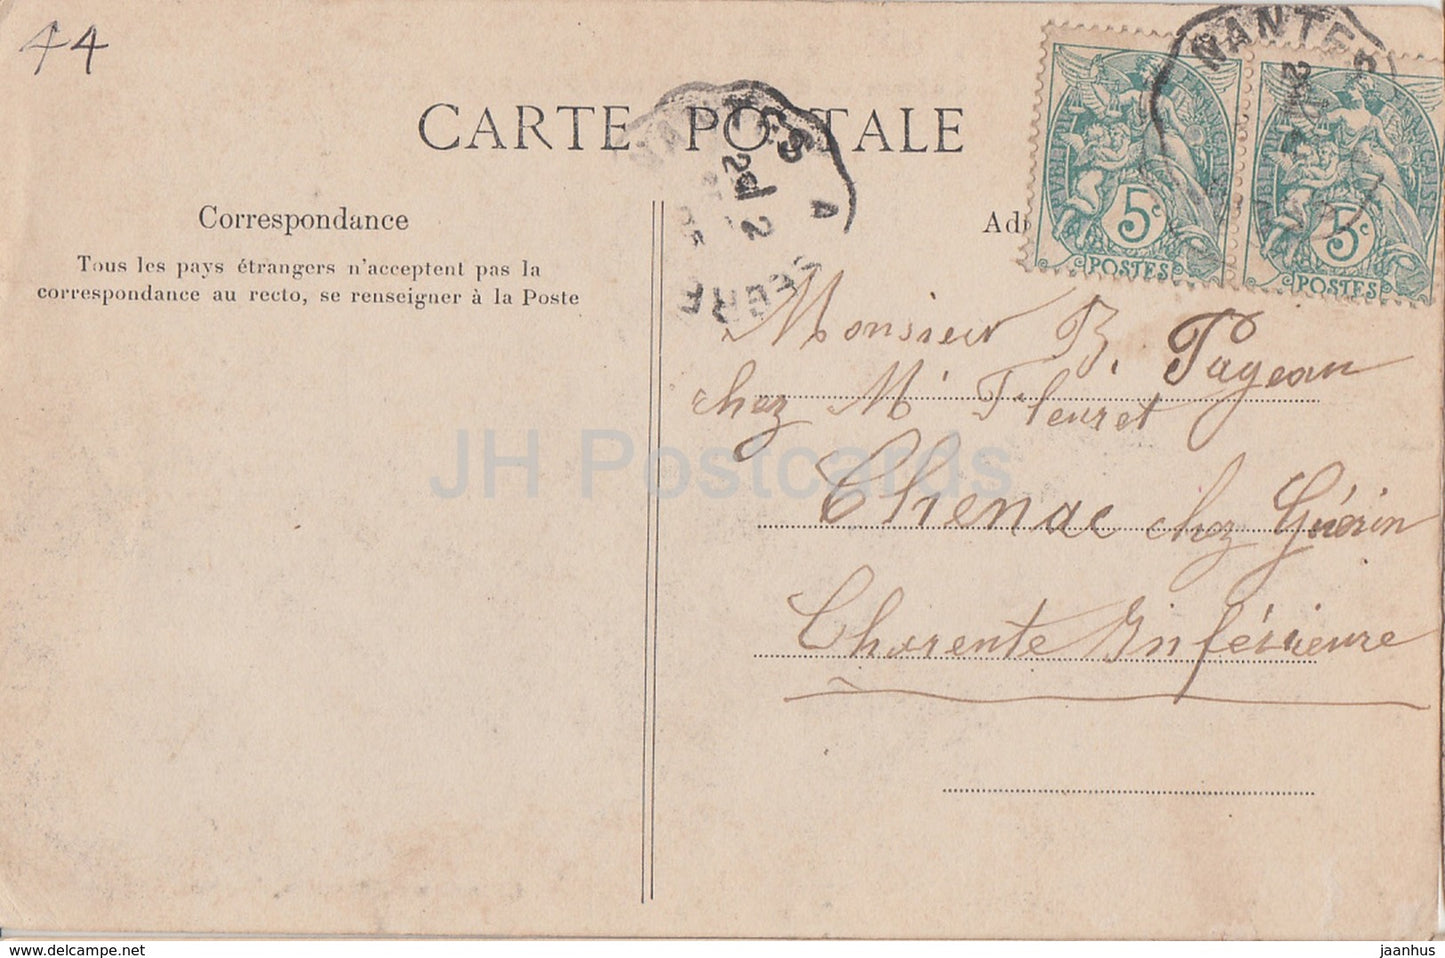 44
CARTE POSTALE
NANTES A
2d 2
NANTES
Correspondance
Tous les pays étrangers n'acceptent pas la
correspondance au recto, se renseigner à la Poste
RÉPUBLIQUE FRANÇAISE
5c
POSTES
RÉPUBLIQUE FRANÇAISE
5c
POSTES
Monsieur B. Pageau
chez Mr Fleuret
Chenac chez Guérin
Charente Inférieure
JH Postcards
www.delcampe.net
jaanhus